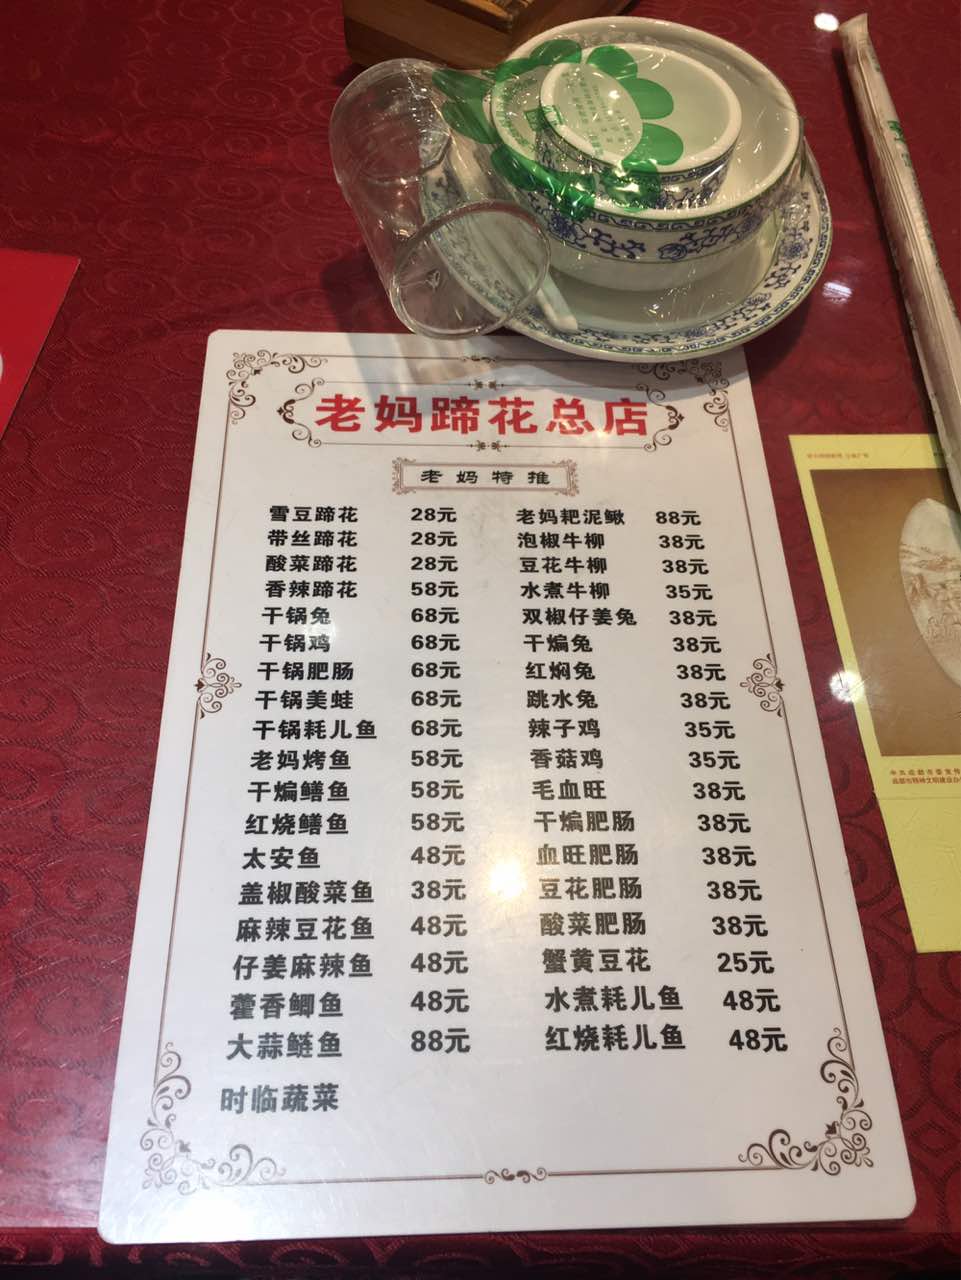 老妈蹄花总店
老妈特推
雪豆蹄花 28元
带丝蹄花 28元
酸菜蹄花 28元
香辣蹄花 58元
干锅兔 68元
干锅鸡 68元
干锅肥肠 68元
干锅美蛙 68元
干锅耗儿鱼 68元
老妈烤鱼 58元
干煸鳝鱼 58元
红烧鳝鱼 58元
太安鱼 48元
盖椒酸菜鱼 38元
麻辣豆花鱼 48元
仔姜麻辣鱼 48元
藿香鲫鱼 48元
大蒜鲢鱼 88元
时临蔬菜
老妈耙泥鳅 88元
泡椒牛柳 38元
豆花牛柳 38元
水煮牛柳 35元
双椒仔姜兔 38元
干煸兔 38元
红焖兔 38元
跳水兔 38元
辣子鸡 35元
香菇鸡 35元
毛血旺 38元
干煸肥肠 38元
血旺肥肠 38元
豆花肥肠 38元
酸菜肥肠 38元
蟹黄豆花 25元
水煮耗儿鱼 48元
红烧耗儿鱼 48元